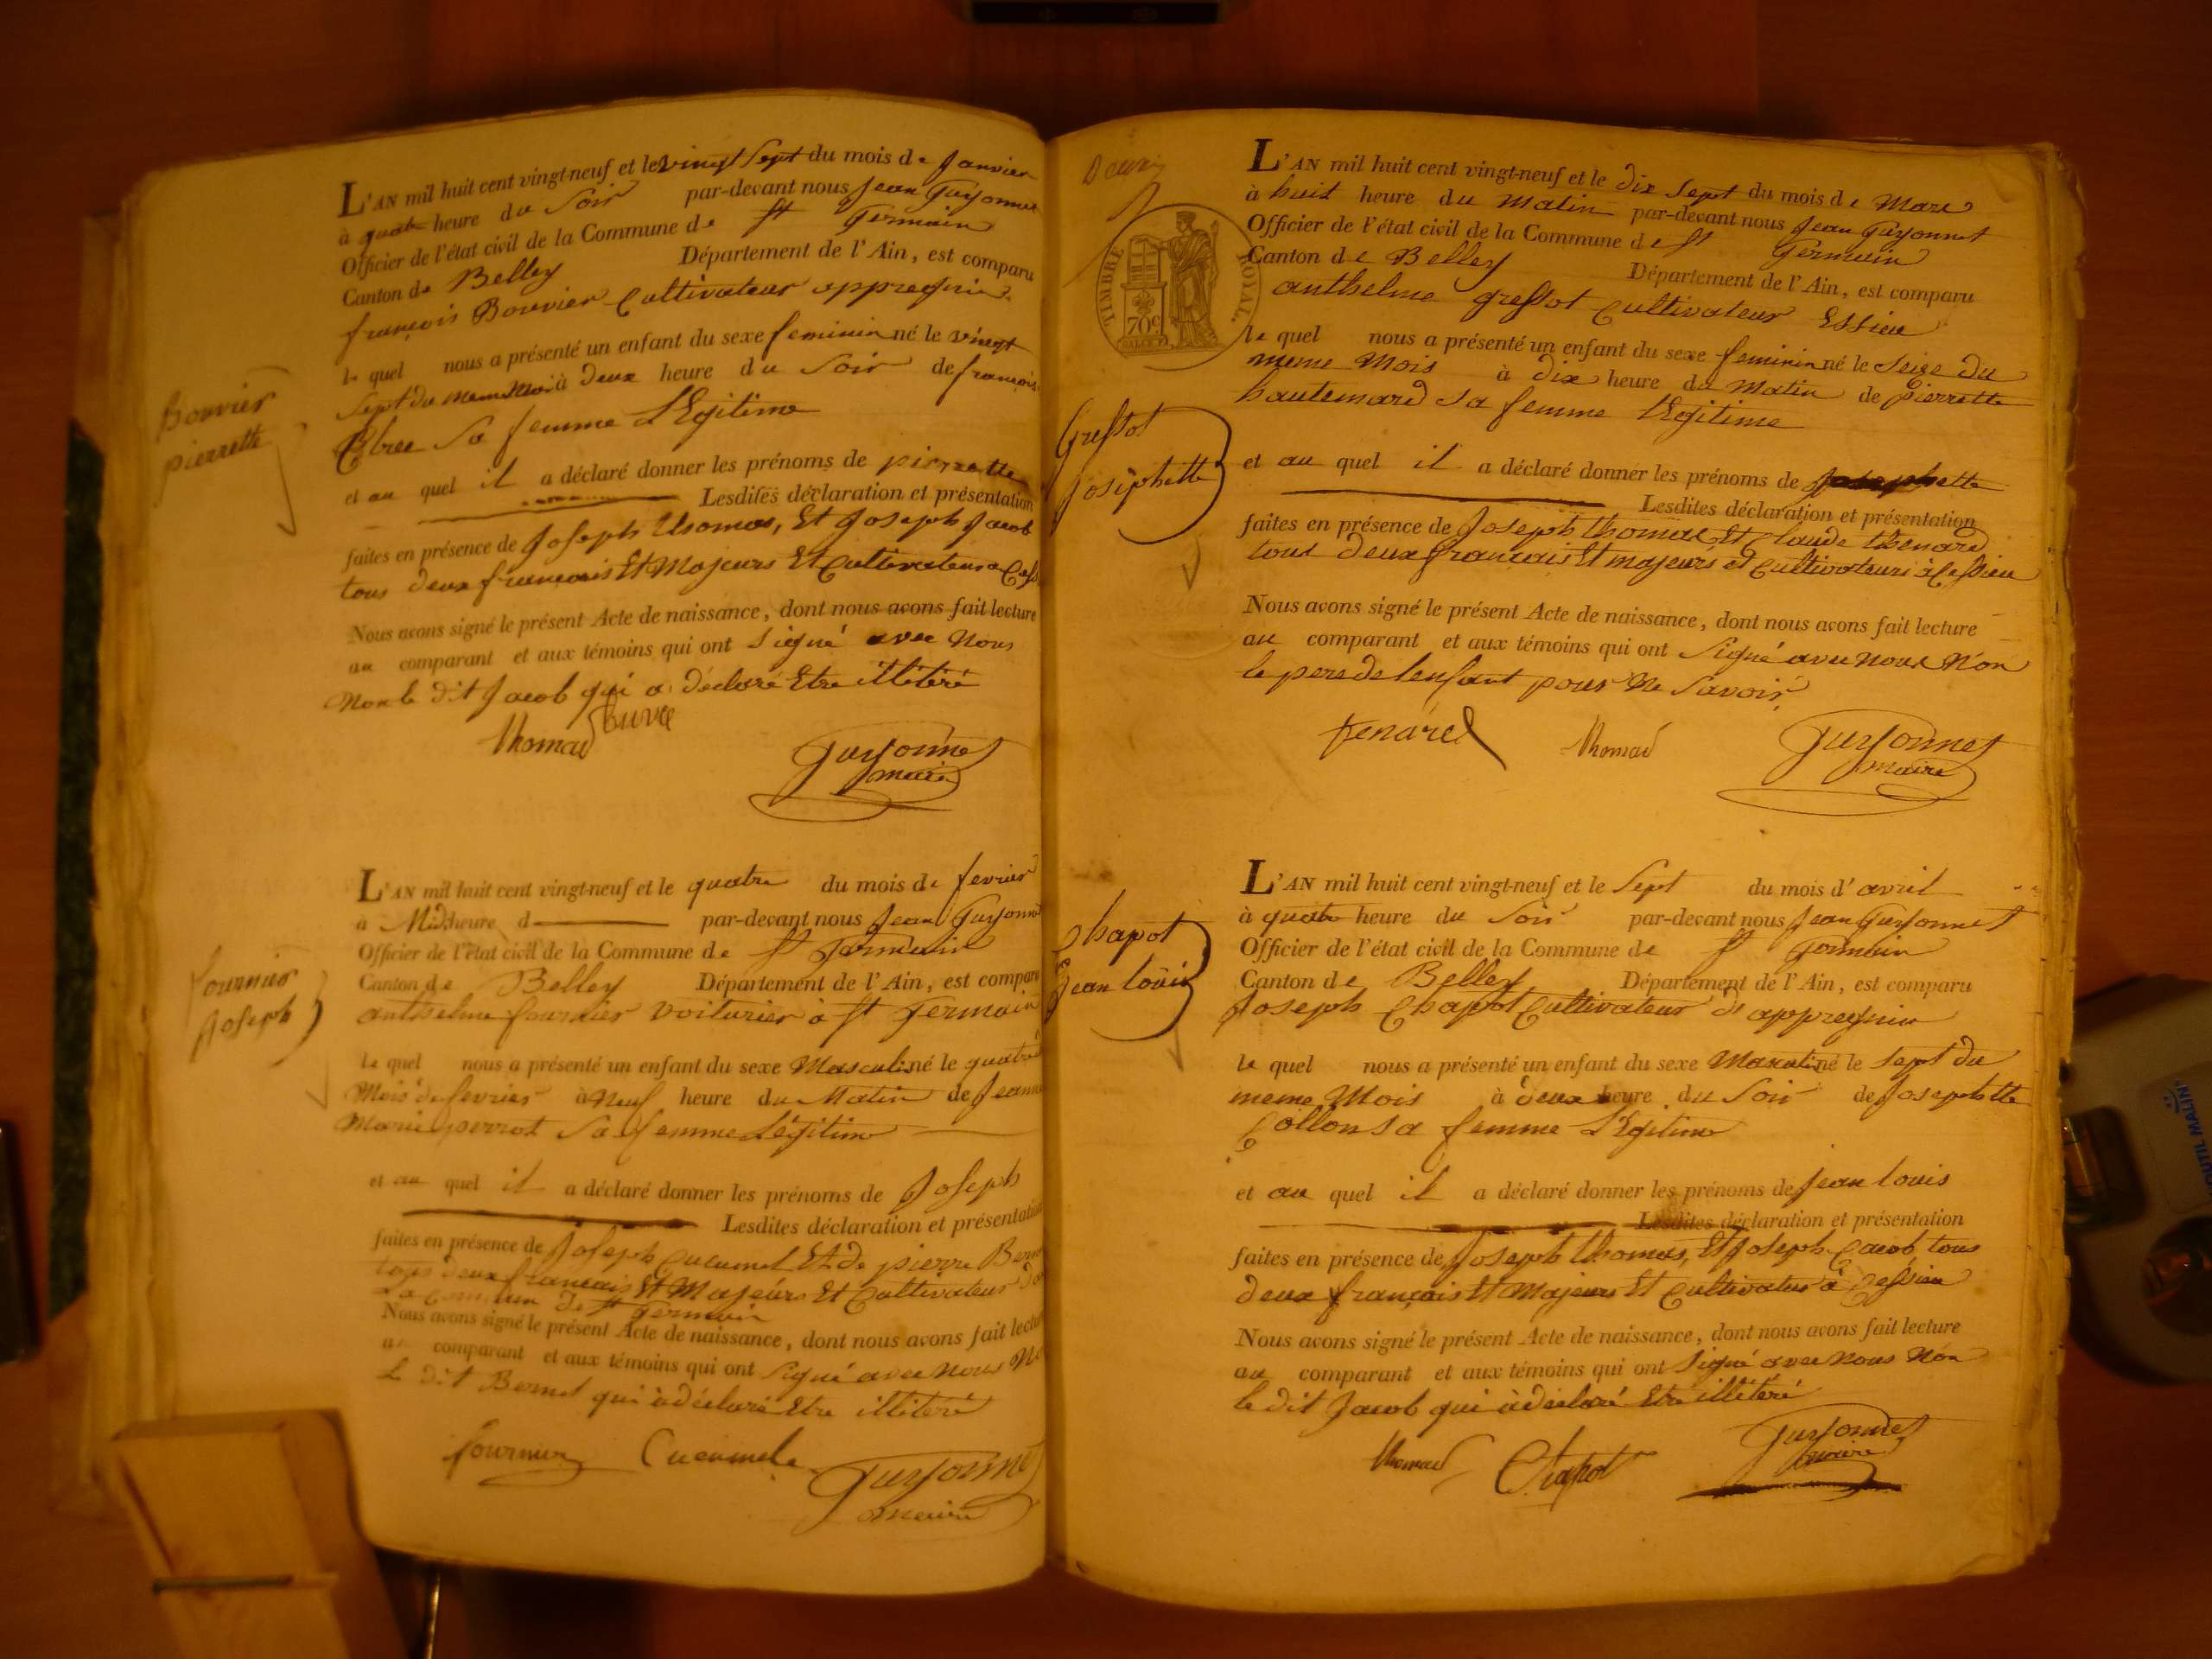 L'AN mil huit cent vingt-neuf et le vingt Sept du mois de Janvier
à quatre heure du Soir par-devant nous Jean Guyonnet
Officier de l'état civil de la Commune de St Germain
Canton de Belley Département de l'Ain, est comparu
françois Bouvier Cultivateur appregnin
le quel nous a présenté un enfant du sexe feminin né le vingt
Sept du meme Mois à Deux heure du Soir de françoise
Sa femme LEgitime
Bouvier
pierrette
et au quel il a déclaré donner les prénoms de pierrette
Lesdites déclaration et présentation
faites en présence de Joseph Thomas, Et Joseph Jacob
tous deux francais Et Majeurs Et Cultivateurs a
Nous avons signé le présent Acte de naissance, dont nous avons fait lecture
au comparant et aux témoins qui ont Signé avec Nous
Non le dit Jacob qui a déclaré Etre illitéré
Thomas
Guyonnet
maire
L'AN mil huit cent vingt-neuf et le quatre du mois de fevrier
à Midi heure d par-devant nous Jean Guyonnet
Officier de l'état civil de la Commune de St Germain
Canton de Belley Département de l'Ain, est comparu
anthelme fournier voiturier à St Germain
fournier
Joseph
le quel nous a présenté un enfant du sexe Masculin né le quatre
Mois de fevrier à Neuf heure du Matin de Jeanne
Marie perrot Sa femme Légitime
et au quel il a déclaré donner les prénoms de Joseph
Lesdites déclaration et présentation
faites en présence de Joseph Cucumel Et de pierre
tous deux francais Et Majeurs Et Cultivateur
de St Germain
Nous avons signé le présent Acte de naissance, dont nous avons fait lecture
au comparant et aux témoins qui ont Signé avec nous
le dit Bernet qui à déclaré Etre illitéré
fournier
Guyonnet
maire
TIMBRE ROYAL
70c
L'AN mil huit cent vingt-neuf et le dix Sept du mois de Mars
à huit heure du Matin par-devant nous Jean Guyonnet
Officier de l'état civil de la Commune de St Germain
Canton de Belley Département de l'Ain, est comparu
anthelme greffot Cultivateur Essieu
le quel nous a présenté un enfant du sexe feminin né le Seize du
meme Mois à dix heure du Matin de pierrette
hautemard Sa femme LEgitime
Greffot
Josephette
et au quel il a déclaré donner les prénoms de Josephette
Lesdites déclaration et présentation
faites en présence de Joseph Thomas Et Claude thenard
tous deux francais Et majeurs et Cultivateurs à Cessieu
Nous avons signé le présent Acte de naissance, dont nous avons fait lecture
au comparant et aux témoins qui ont Signé avec nous Non
le pere de lenfant pour ne Savoir
tenard
Thomas
Guyonnet
maire
L'AN mil huit cent vingt-neuf et le Sept du mois d'avril
à quatre heure du Soir par-devant nous Jean Guyonnet
Officier de l'état civil de la Commune de St Germain
Canton de Belley Département de l'Ain, est comparu
Joseph Chapot Cultivateur d'appregnin
Chapot
Jean louis
le quel nous a présenté un enfant du sexe Masculin né le Sept du
meme Mois à deux heure du Soir de Josephette
Collon Sa femme LEgitime
et au quel il a déclaré donner les prénoms de Jean louis
Lesdites déclaration et présentation
faites en présence de Joseph Thomas, Et Joseph Jacob, tous
deux français Et Majeurs Et Cultivateur à Cessieu
Nous avons signé le présent Acte de naissance, dont nous avons fait lecture
au comparant et aux témoins qui ont Signé avec Nous Non
le dit Jacob qui à déclaré Etre illitéré
Thomas
Chapot
Guyonnet
maire
OUTIL MALIN